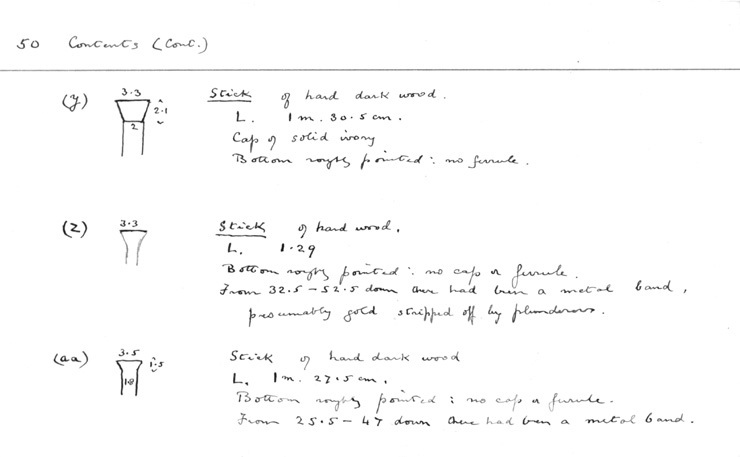 50 Contents (Cont.)
(y) 3.3 2.1 2 Stick of hard dark wood.
L. 1 m. 30.5 cm.
Cap of solid ivory
Bottom roughly pointed: no ferrule.
(z) 3.3 Stick of hard wood.
L. 1.29
Bottom roughly pointed: no cap or ferrule.
From 32.5 – 52.5 down there had been a metal band,
presumably gold stripped off by plunderers.
(aa) 3.5 1.5 Stick of hard dark wood
L. 1 m. 27.5 cm.
Bottom roughly pointed: no cap or ferrule.
From 25.5 – 47 down there had been a metal band.